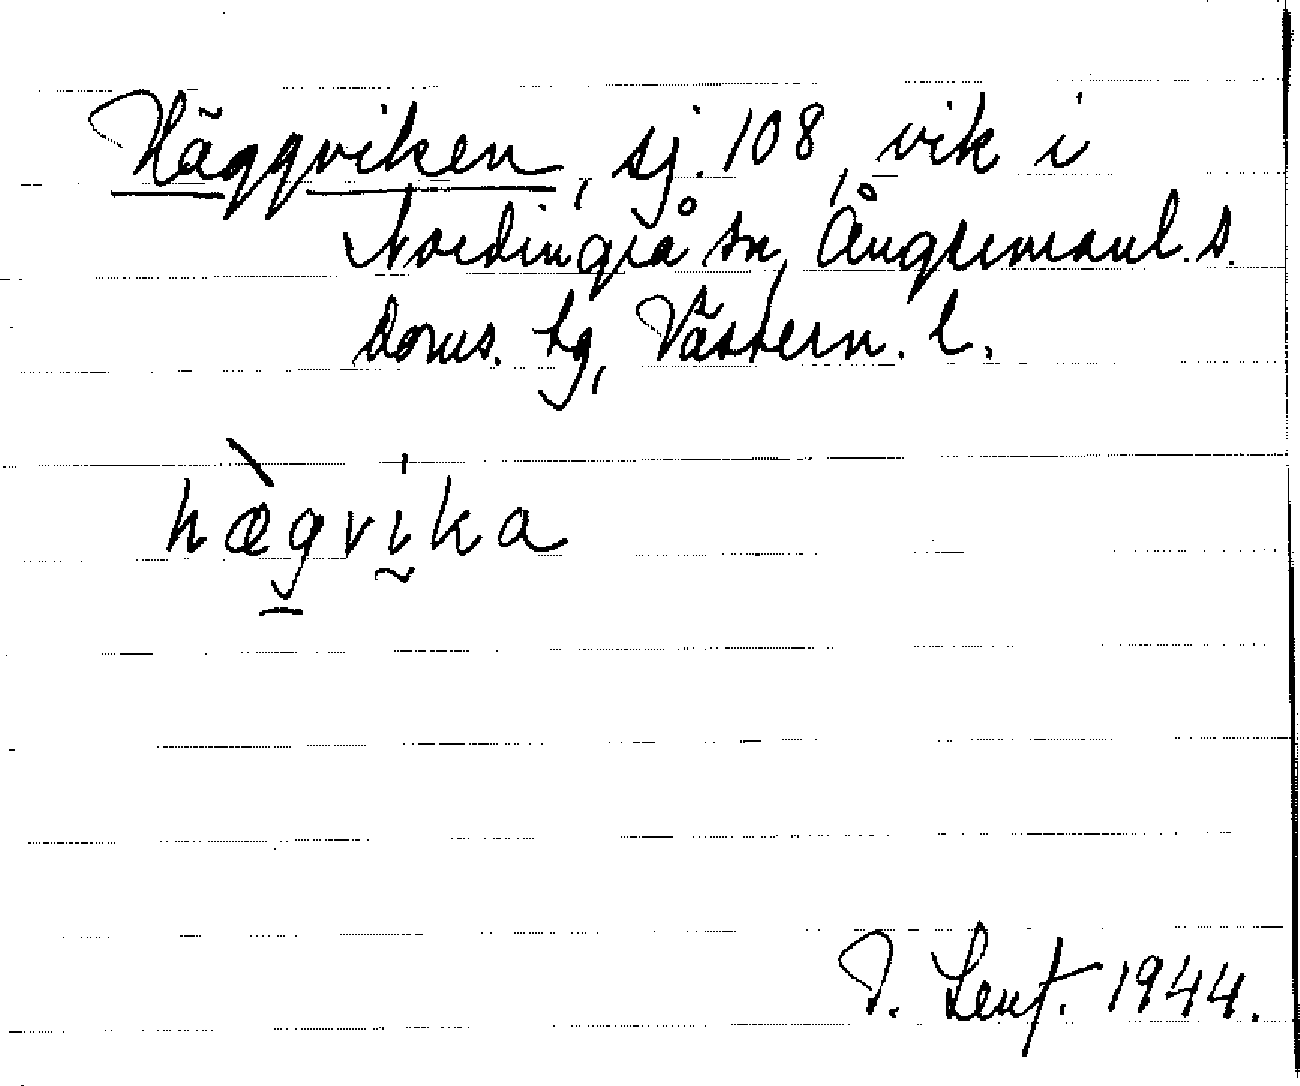 Häggviken, sj. 108, vik i
Nordingrå sn, Ångermanl. s.
doms. tg, Västern. l.
hæ̀gvḭka
J. Lenf. 1944.